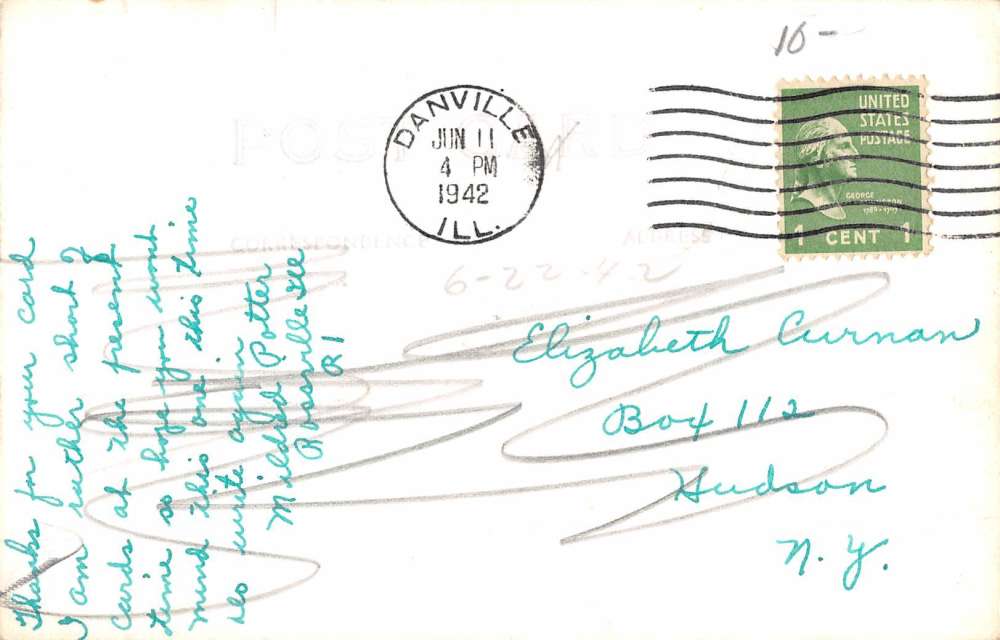 10-
POST CARD
DANVILLE
JUN 11
4 PM
1942
ILL.
UNITED
STATES
POSTAGE
GEORGE
WASHINGTON
1 CENT 1
CORRESPONDENCE
ADDRESS
6-22-42
Thanks for your card
I am rather short of
cards at the present
time so hope you wont
mind this one this time
Do write again
Mildred Potter
Rossville Ill
R 1
Elizabeth Curnan
Box 112
Hudson
N. Y.